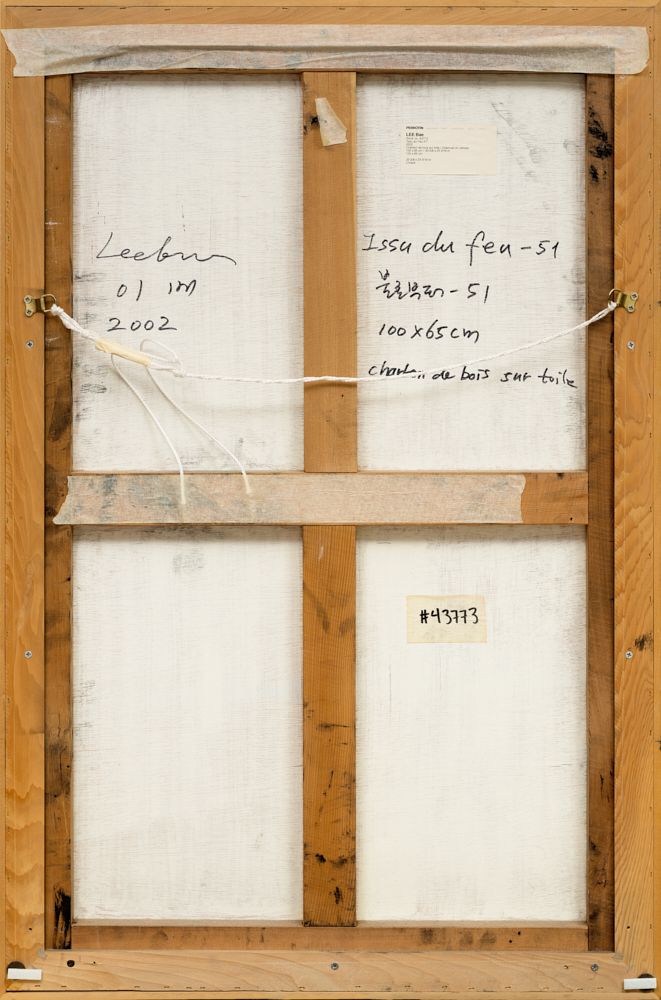 PERROTIN
LEE Bae
Leebae
이 배
2002
Issu du feu-51
불로부터-51
100x65cm
charbon de bois sur toile
#43773